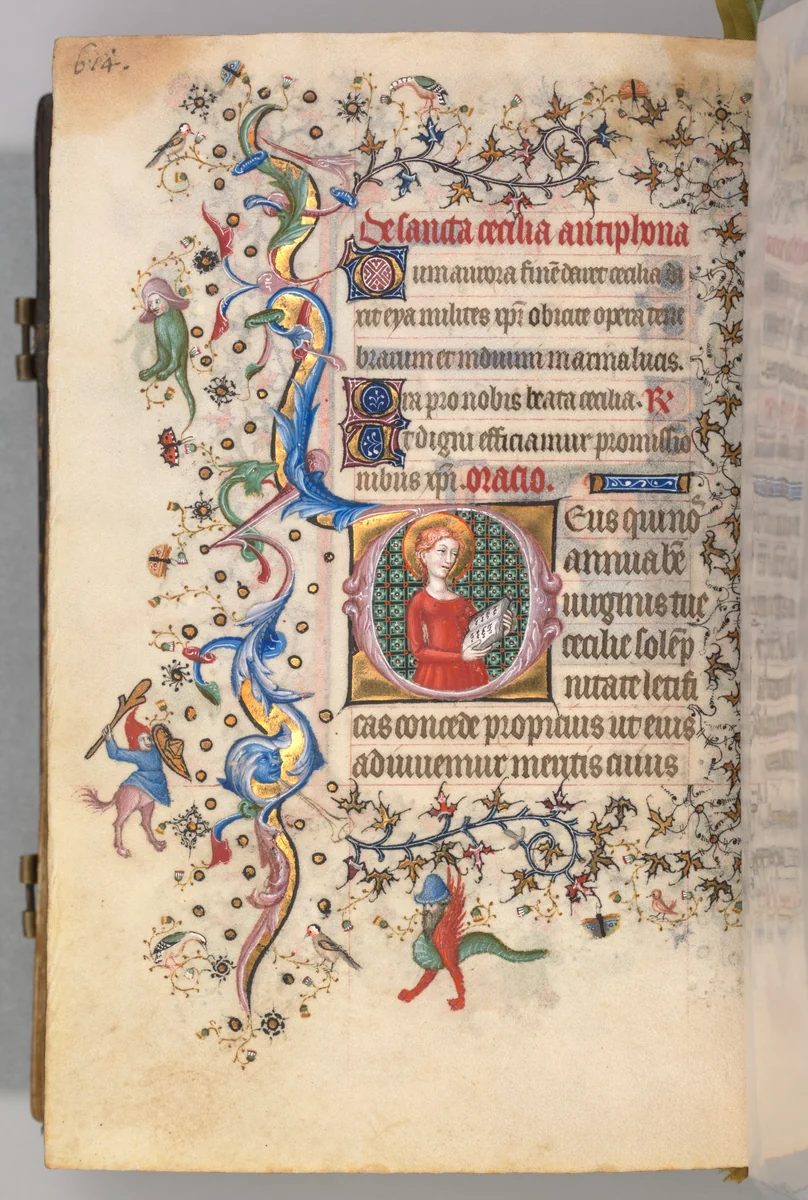 614.
De sancta cecilia antiphona
Dum aurora finē daret cecilia di
xit eya milites xp̄i obicite opera tene
brarum et induimi in arma lucis.
Ora pro nobis beata cecilia. R
Et digni efficiamur promissio
nibus xp̄i. oracio.
Deus qui nos
annua bē
uirginis tue
cecilie solēp
nitate letifi
cas concede propicius ut eius
adiuuemur mentis cuius